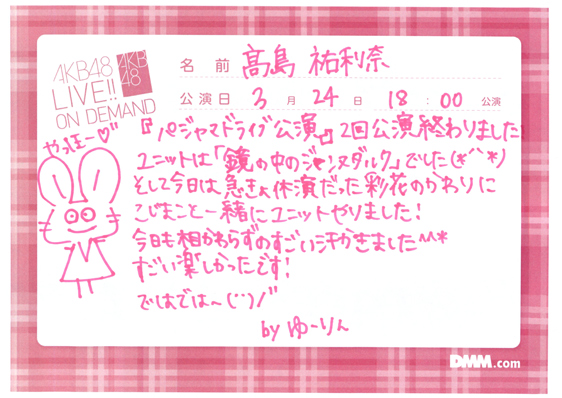 AKB48
LIVE!!
ON DEMAND
AKB
48
名前 高島 祐利奈
公演日 3月24日 18:00公演
やっほー♡
『パジャマドライブ公演』2回公演終わりました
ユニットは「鏡の中のジャンヌダルク」でした(*^^*)
そして今日は急きょ休演だった彩花のかわりに
こじまこと一緒にユニットやりました!
今日も相かわらずのすごい汗かきました^^*
すごい楽しかったです!
ではでは〜
by ゆーりん
DMM.com